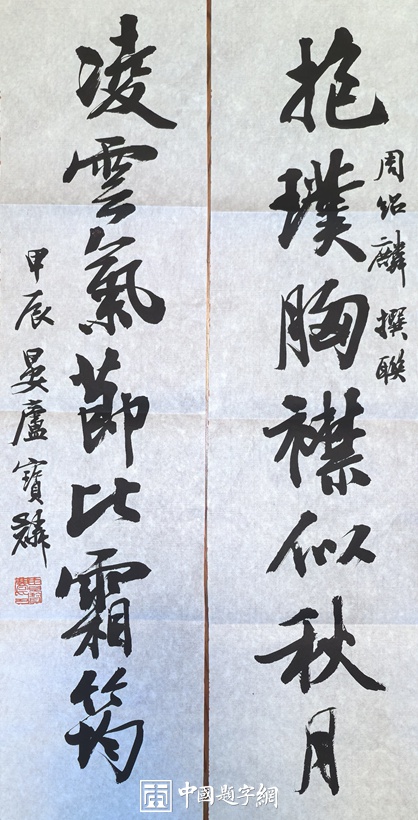 抱璞胸襟似秋月
周紹麟撰聯
凌雲氣節比霜筠
甲辰晏廬寶麟
中國題字網